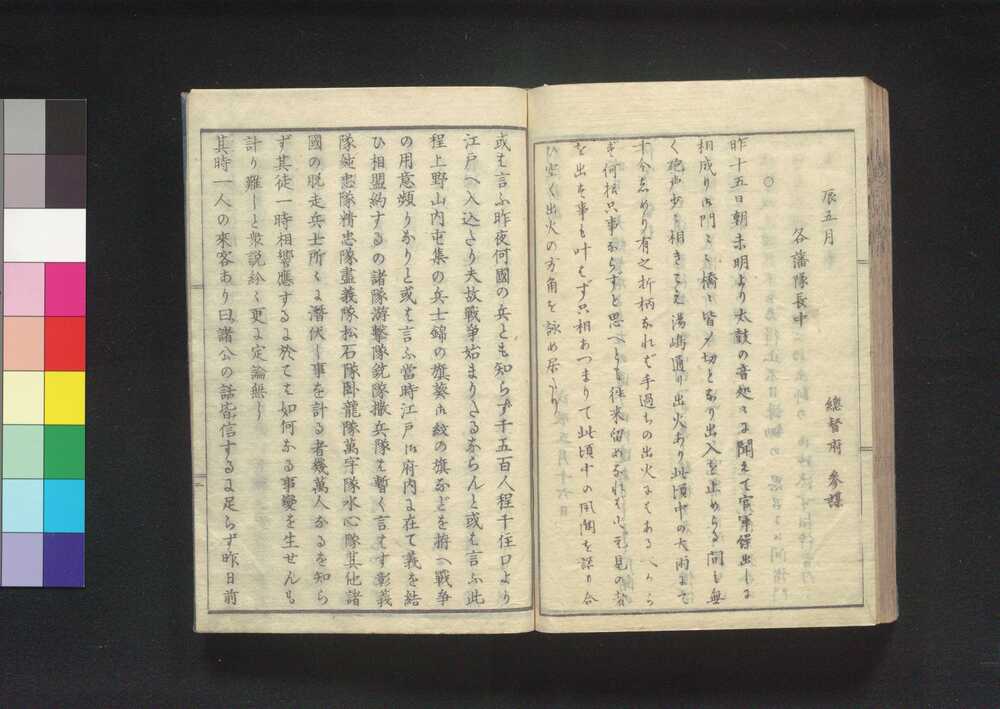 辰五月
總督府 參謀
各藩隊長中
昨十五日朝未明より太鼓の音処々に聞えて官軍操出しに
相成り御門々々橋々皆〆切となり出入を止めらる間も無
く砲声少々相きこえ湯嶋通り出火あり此頃中の大雨にて
十分しめり有之折柄なれば手過ちの出火にてはあるべから
ず何様只事ならずと思へども往来留めなれば火元見の者
を出す事も叶はず只相あつまりて此頃中の風聞を語り合
ひ空く出火の方角を詠め居たり
或は言ふ昨夜何國の兵とも知らず千五百人程千住口より
江戸へ入込たり夫故戰争始まりたるならんと或は言ふ此
程上野山内屯集の兵士錦の旗葵御紋の旗などを拵へ戰争
の用意頻りなりと或は言ふ當時江戸御府内に在て義を結
ひ相盟約するの諸隊游撃隊銃隊撒兵隊は暫く言はす彰義
隊純忠隊精忠隊盡義隊松石隊臥龍隊萬字隊水心隊其他諸
國の脱走兵士所々に潛伏し事を計る者幾萬人なるを知ら
ず其徒一時相響應するに於ては如何なる事變を生せんも
計り難しと衆説紛々更に定論無し
其時一人の來客あり曰諸公の話皆信するに足らず昨日前